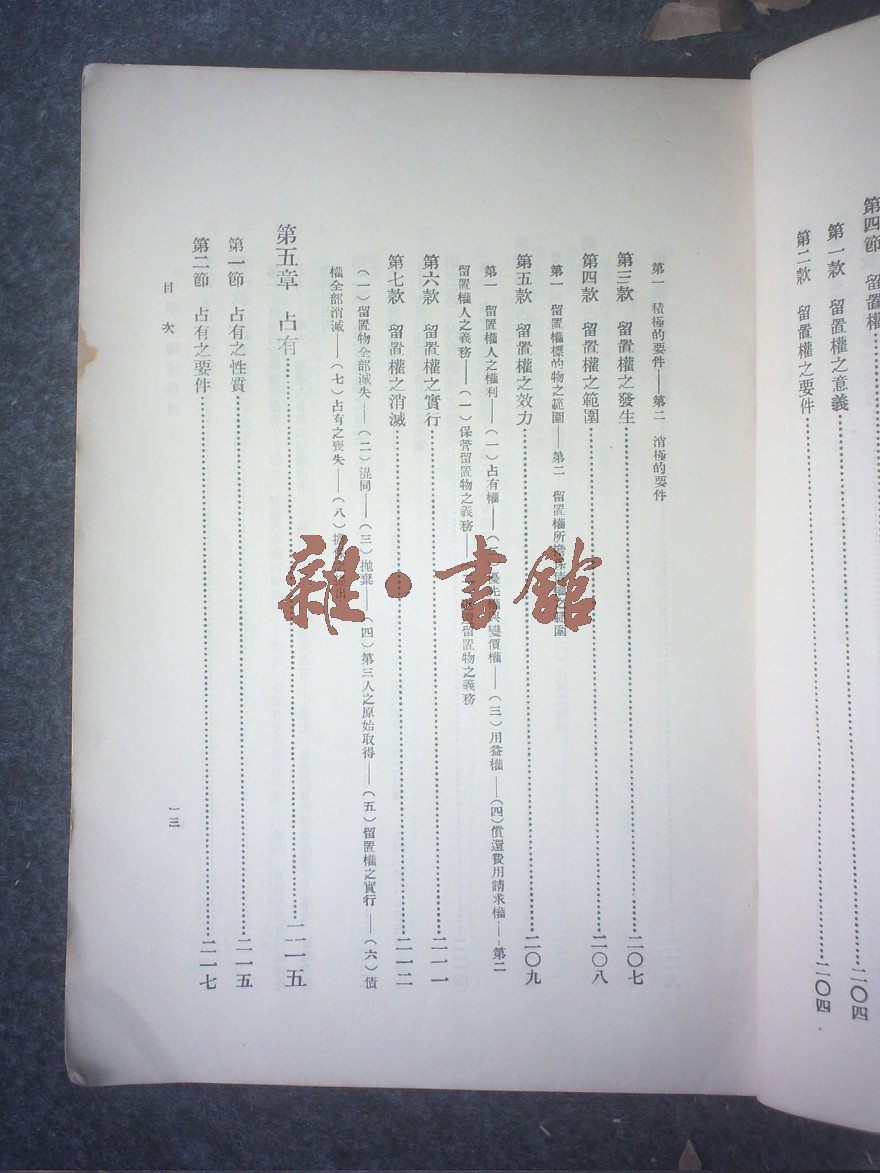 第四節 留置權
第一款 留置權之意義……二〇四
第二款 留置權之要件……二〇四
第一 積極的要件——第二 消極的要件
第三款 留置權之發生……二〇七
第四款 留置權之範圍……二〇八
第一 留置權標的物之範圍——第二 留置權所擔保 範圍
第五款 留置權之效力……二〇九
第一 留置權人之權利——(一)占有權——( 優先權與變價權——(三)用益權——(四)償還費用請求權——第二
留置權人之義務——(一)保管留置物之義務—— 留置物之義務
第六款 留置權之實行……二一一
第七款 留置權之消滅……二一二
(一)留置物全部滅失——(二)混同——(三)拋棄——(四)第三人之原始取得——(五)留置權之實行——(六)債
權全部消滅——(七)占有之喪失——(八)
第五章 占有……二一五
第一節 占有之性質……二一五
第二節 占有之要件……二一七
目次
一三
雜·書館